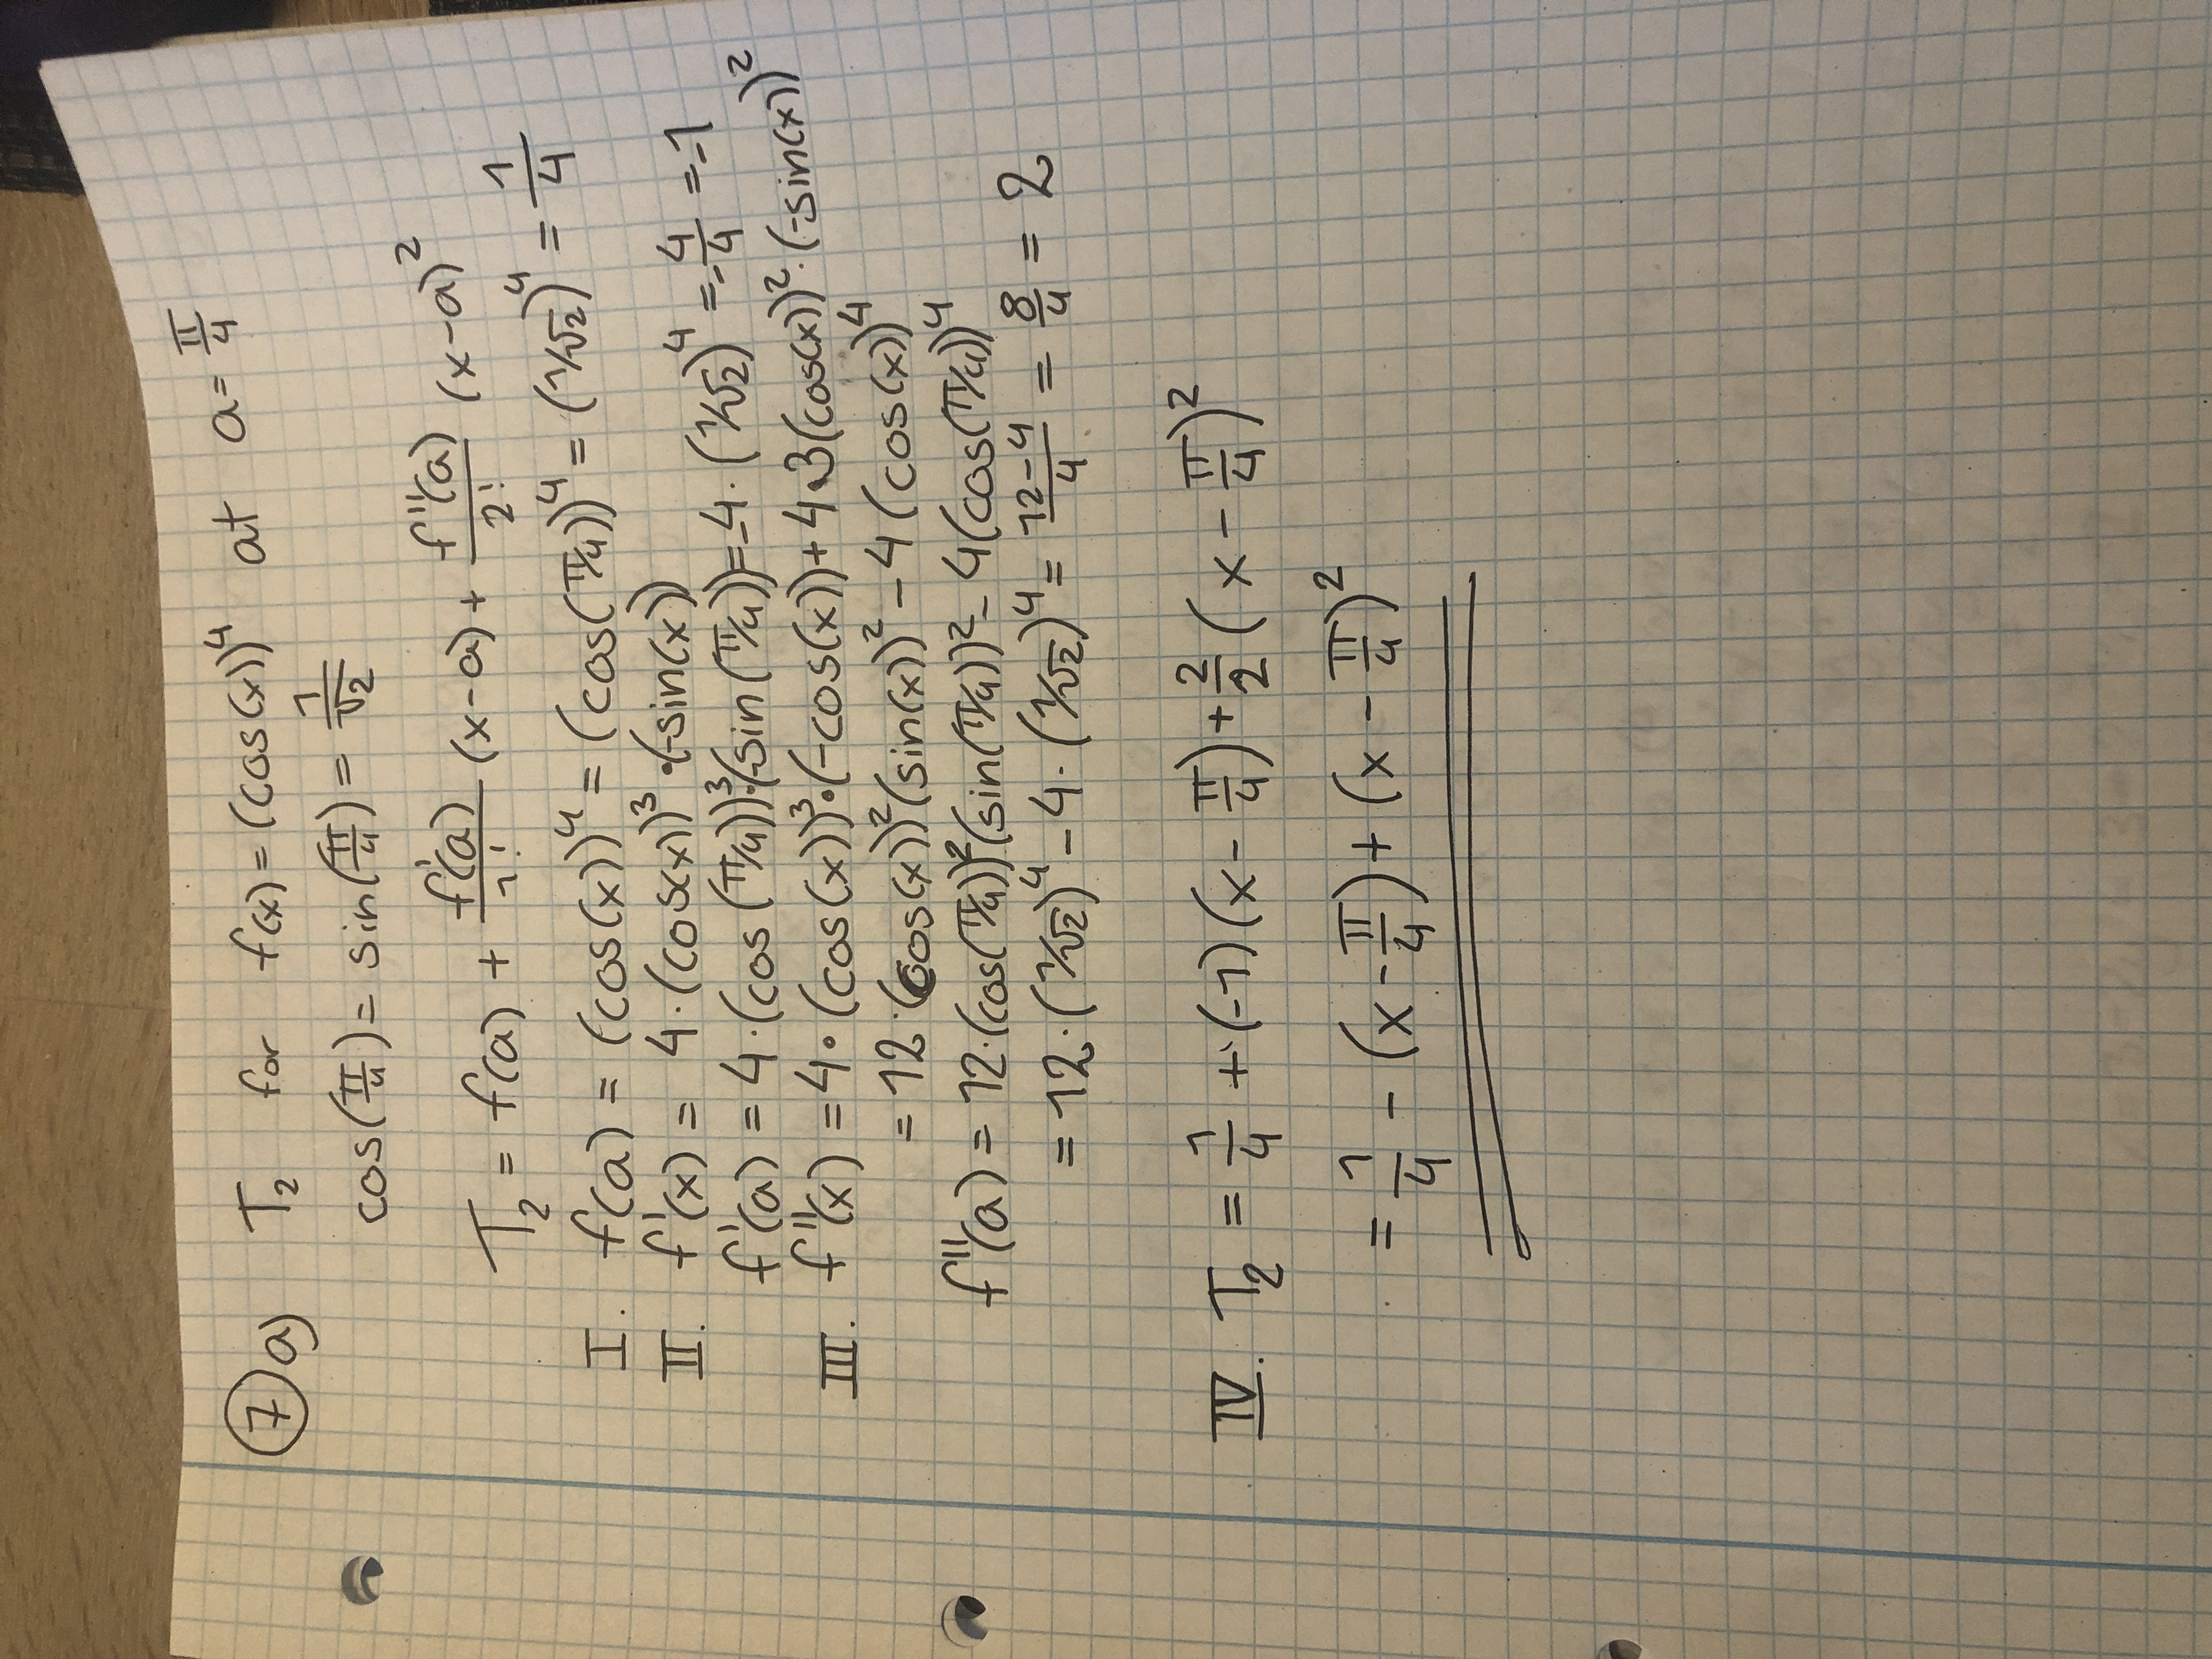 7 a) T₂ for f(x) = (cos(x))⁴ at a = π/4
cos(π/4) = sin(π/4) = 1/√2
T₂ = f(a) + f'(a)/1! (x-a) + f''(a)/2! (x-a)²
I. f(a) = (cos(x))⁴ = (cos(π/4))⁴ = (1/√2)⁴ = 1/4
II. f'(x) = 4·(cos(x))³·(-sin(x))
f'(a) = 4·(cos(π/4))³·(-sin(π/4)) = -4·(1/√2)⁴ = -4/4 = -1
III. f''(x) = 4·(cos(x))³·(-cos(x)) + 4·3(cos(x))²·(-sin(x))²
= 12·(cos(x))²(sin(x))² - 4(cos(x))⁴
f''(a) = 12·(cos(π/4))²(sin(π/4))² - 4(cos(π/4))⁴
= 12·(1/√2)⁴ - 4·(1/√2)⁴ = 12-4/4 = 8/4 = 2
IV. T₂ = 1/4 + (-1)(x - π/4) + 2/2 (x - π/4)²
= 1/4 - (x - π/4) + (x - π/4)²